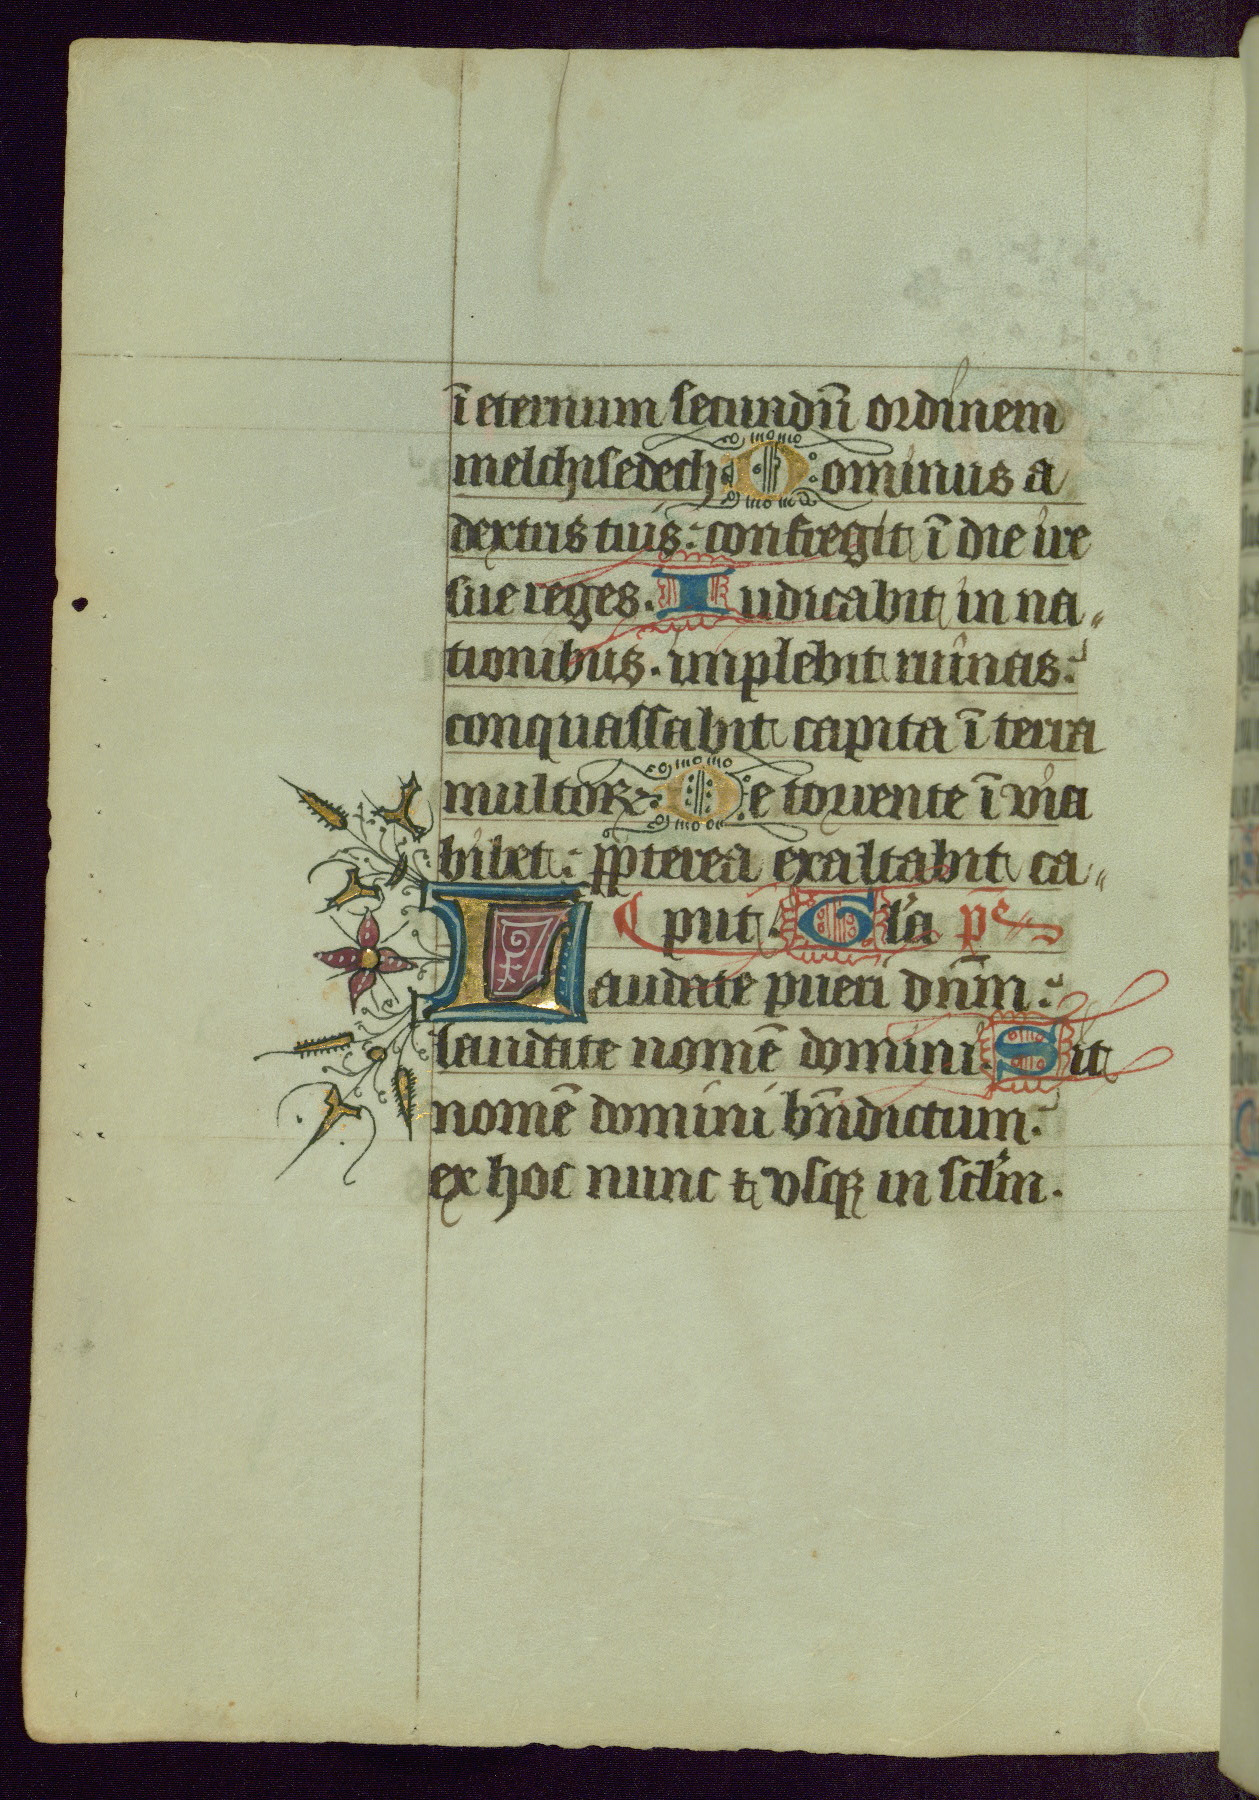 ī eternum secundū ordinem
melchisedech Dominus a
dextris tuis: confregit ī die ire
sue reges. Iudicabit in na„
tionibus. implebit ruinas:
conquassabit capita ī terra
multoꝝ. De torrente ī via
bibet: ꝓpterea exaltabit ca„
put. Gl'a pˢ
Laudate pueri dn̄m:
laudate nomē domini. Sit
nomē domini bn̄dictum:
ex hoc nunc ⁊ vsqꝫ in sclm̄.